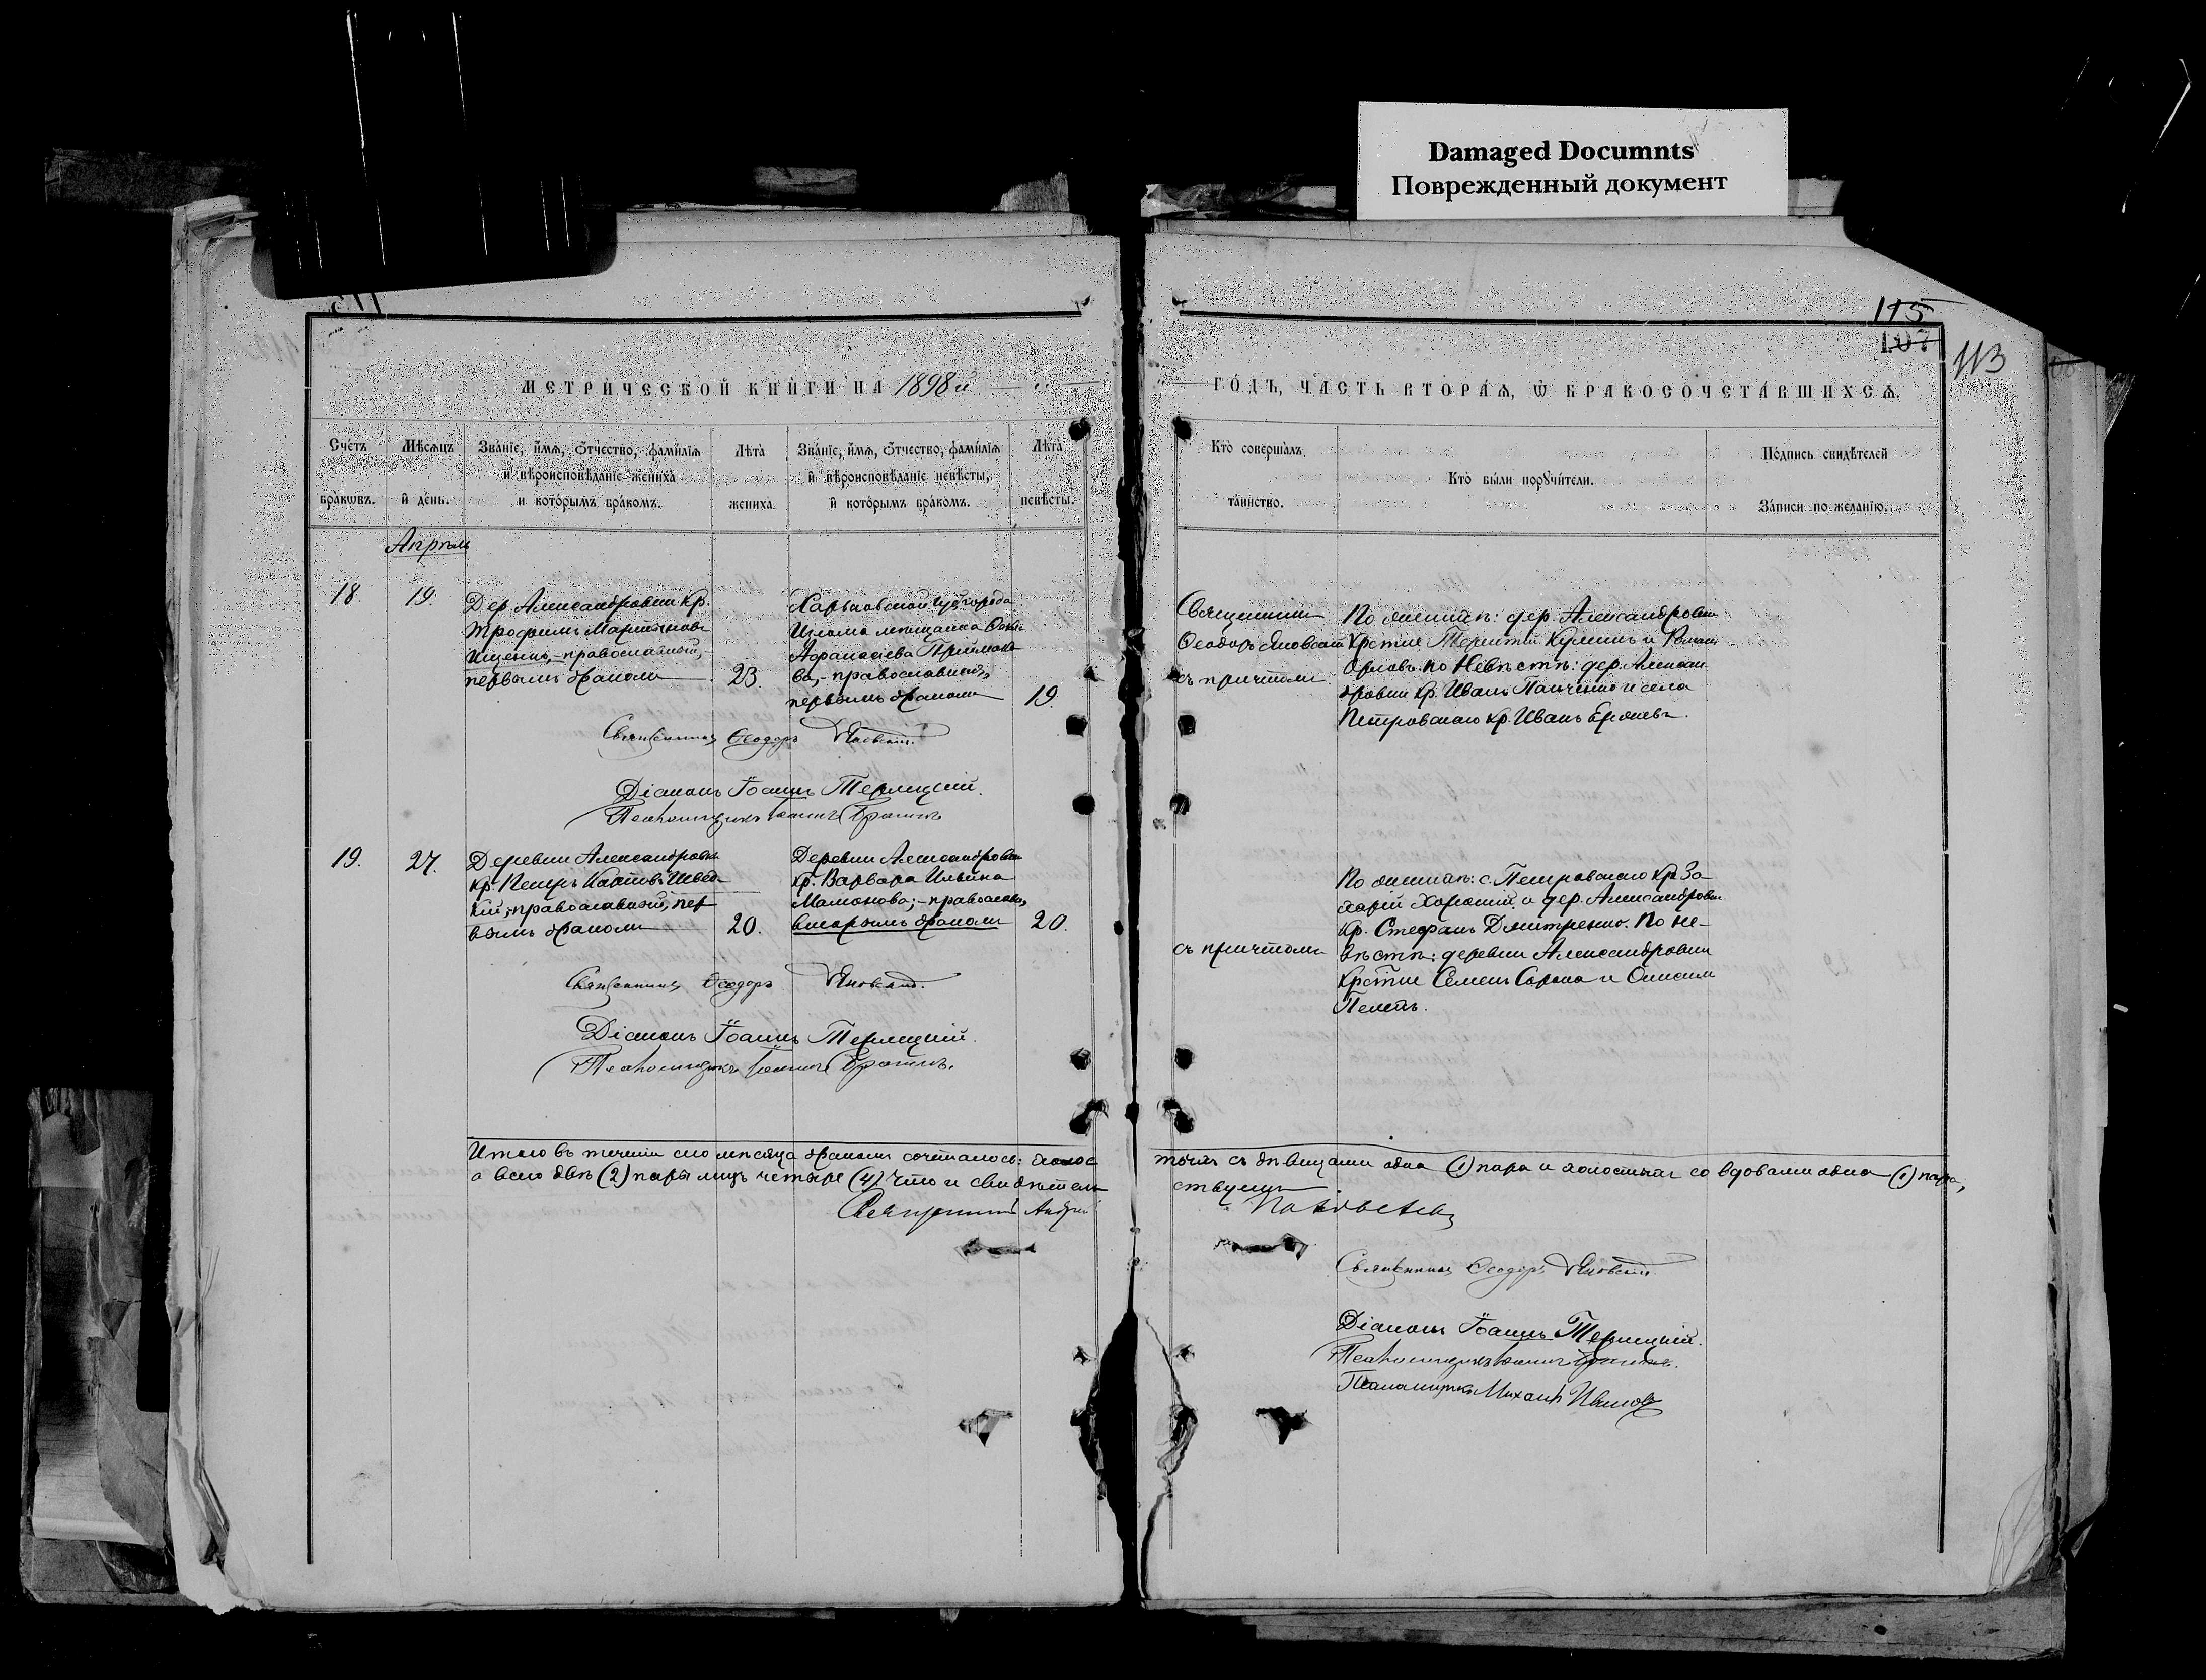 Damaged Documnts
Поврежденный документ
115
107
113
МЕТРИЧЕСКОЙ КНИГИ НА 1898й
ГОДЪ, ЧАСТЬ ВТОРАЯ, Ѡ БРАКОСОЧЕТАВШИХСЯ.
Счетъ браковъ.
Мѣсяцъ и день.
Званіе, имя, отчество, фамилія и вѣроисповѣданіе жениха и которымъ бракомъ.
Лѣта жениха
Званіе, имя, отчество, фамилія и вѣроисповѣданіе невѣсты, и которымъ бракомъ.
Лѣта невѣсты.
Кто совершалъ таинство.
Кто были поручители.
Подпись свидѣтелей записи по желанію.
Апрѣль
18. 19.
Дер. Александровки кр.
Трофимъ Мартиновъ
Ищенко, - православный,
первымъ бракомъ
23.
Харьковской губ города
Изюма мещанка
Афанасіева Приймако
ва, - православная,
первымъ бракомъ
19.
Священникъ
Ѳеодоръ Яновскій
съ причтомъ
По женихѣ: дер. Александровки
Крстне Терентій и Романъ
Орловъ. По Невѣстѣ: дер. Алексан
дровки кр. Иванъ Панченко и села
Петровскаго кр. Иванъ
Священникъ Ѳеодоръ Яновскій.
Діаконъ Іоаннъ Терлецкій.
Псаломщикъ Іоаннъ
19. 27.
Деревни Александровки
кр. Петръ Швед
кій, православный, пер
вымъ бракомъ
20.
Деревни Александровки
кр. Варвара Ильина
Мамонова; - православн,
вторымъ бракомъ
20.
съ причтомъ
По женихѣ: с. Петровскаго кр. За
харій Хорошій и дер. Александровки
кр. Стефанъ Дмитренко. По не-
вѣстѣ: деревни Александровки
крстне Семенъ Сорока и Онисим
Священникъ Ѳеодоръ Яновскій.
Діаконъ Іоаннъ Терлецкій.
Псаломщикъ Іоаннъ
Итого въ теченіи сего мѣсяца бракомъ сочеталось: холос
тыхъ съ дѣвицами одна (1) пара и холостыхъ со вдовами одна (1) пара,
а всего двѣ (2) пары лицъ четыре (4) что и свидѣтель
ствуемъ
Священникъ Андрей
Священникъ Ѳеодоръ Яновскій.
Діаконъ Іоаннъ Терлецкій.
Псаломщикъ Іоаннъ
Михаилъ Ивановъ